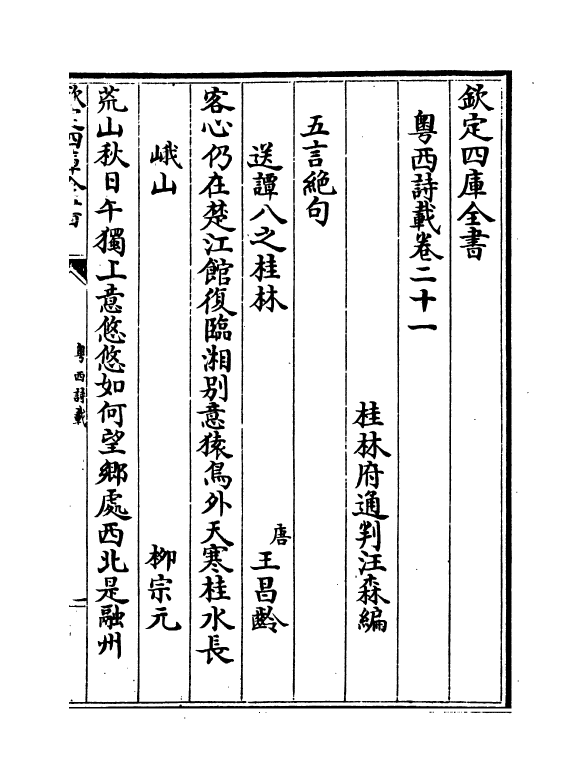 欽定四庫全書
粵西詩載卷二十一
桂林府通判汪森編
五言絶句
送譚八之桂林 唐 王昌齡
客心仍在楚江館復臨湘别意猿鳥外天寒桂水長
峨山 柳宗元
荒山秋日午獨上意悠悠如何望鄉處西北是融州
欽定四庫全書
粵西詩載
一